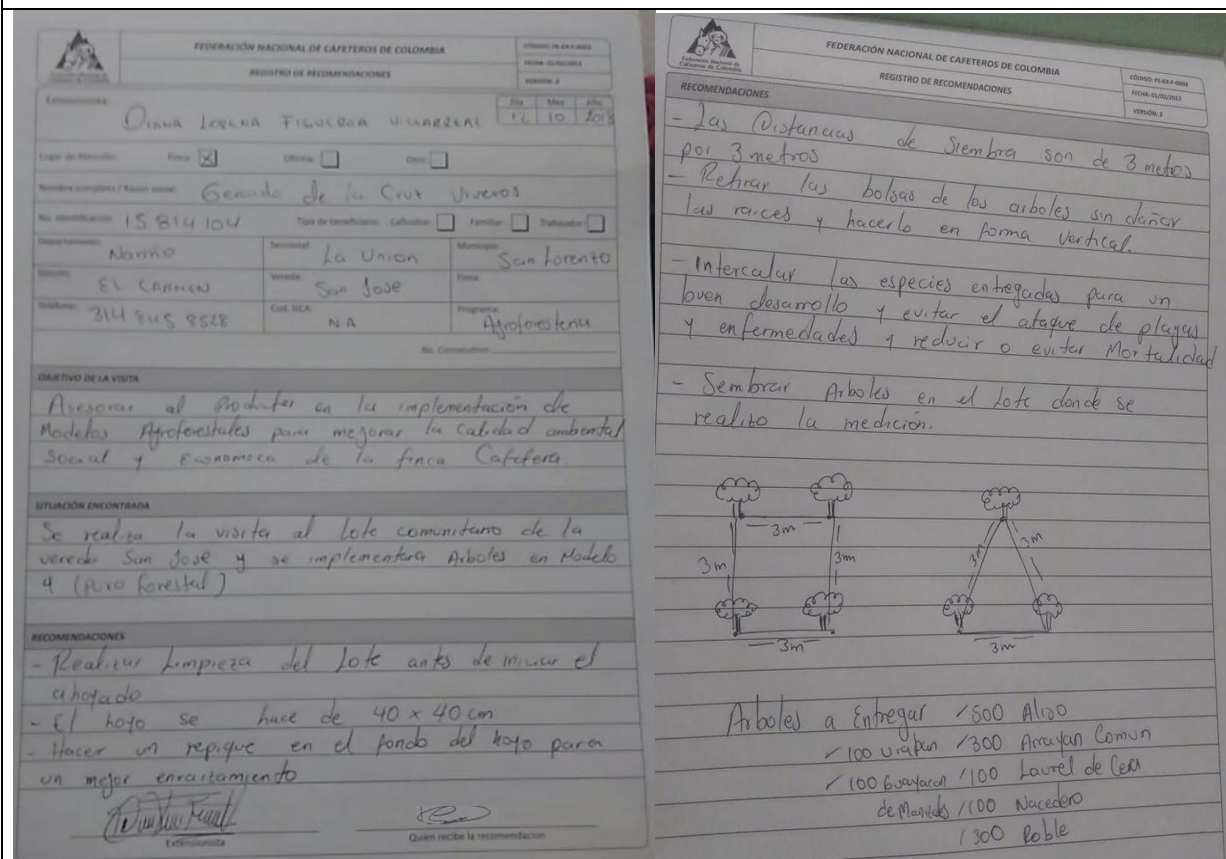 FEDERACIÓN NACIONAL DE CAFETEROS DE COLOMBIA
REGISTRO DE RECOMENDACIONES
VERSIÓN: 3
Extensionista:
DIANA LORENA FIGUEROA VILLARREAL
Día Mes Año
12 10 2018
Lugar de Atención: Finca: X Oficina: Otro:
Nombre completo / Razón social: Gerardo de la Cruz Viveros
No. Identificación: 15 814 104 Tipo de beneficiario: Caficultor: Familiar: Trabajador:
Departamento: Nariño Seccional: La Union Municipio: San Lorenzo
Distrito: EL CARMEN Vereda: San Jose Finca:
Teléfono: 314 845 8528 Cod. SICA: NA Programa: Agroforesteria
No. Consecutivo:
OBJETIVO DE LA VISITA
Asesorar al Productor en la implementación de
Modelos Agroforestales para mejorar la calidad ambiental
Social y Economica de la finca Cafetera.
SITUACIÓN ENCONTRADA
Se realiza la visita al Lote comunitario de la
vereda San Jose y se implementara Arboles en Modelo
4 (Puro forestal)
RECOMENDACIONES
- Realizar Limpieza del Lote antes de iniciar el
ahoyado
- El hoyo se hace de 40 x 40 cm
- Hacer un repique en el fondo del hoyo para
un mejor enraizamiento
Extensionista
Quien recibe la recomendación
Federación Nacional de
Cafeteros de Colombia
FEDERACIÓN NACIONAL DE CAFETEROS DE COLOMBIA
REGISTRO DE RECOMENDACIONES
CÓDIGO: FE-EX-F-0003
FECHA: 01/03/2013
VERSIÓN: 3
RECOMENDACIONES
- Las Distancias de Siembra son de 3 metos
por 3 metros
- Retirar las bolsas de los arboles sin dañar
las raices y hacerlo en forma vertical.
- Intercalar las especies entregadas para un
buen desarrollo y evitar el ataque de plagas
y enfermedades y reducir o evitar Mortalidad
- Sembrar Arboles en el Lote donde se
realizo la medición.
3m
3m
3m
3m
3m
3m
3m
Arboles a Entregar / 500 Aliso
✓ 100 Urapan / 300 Arrayan Comun
✓ 100 Guayacan / 100 Laurel de Cera
de Manizales / 100 Nacedero
/ 300 Roble